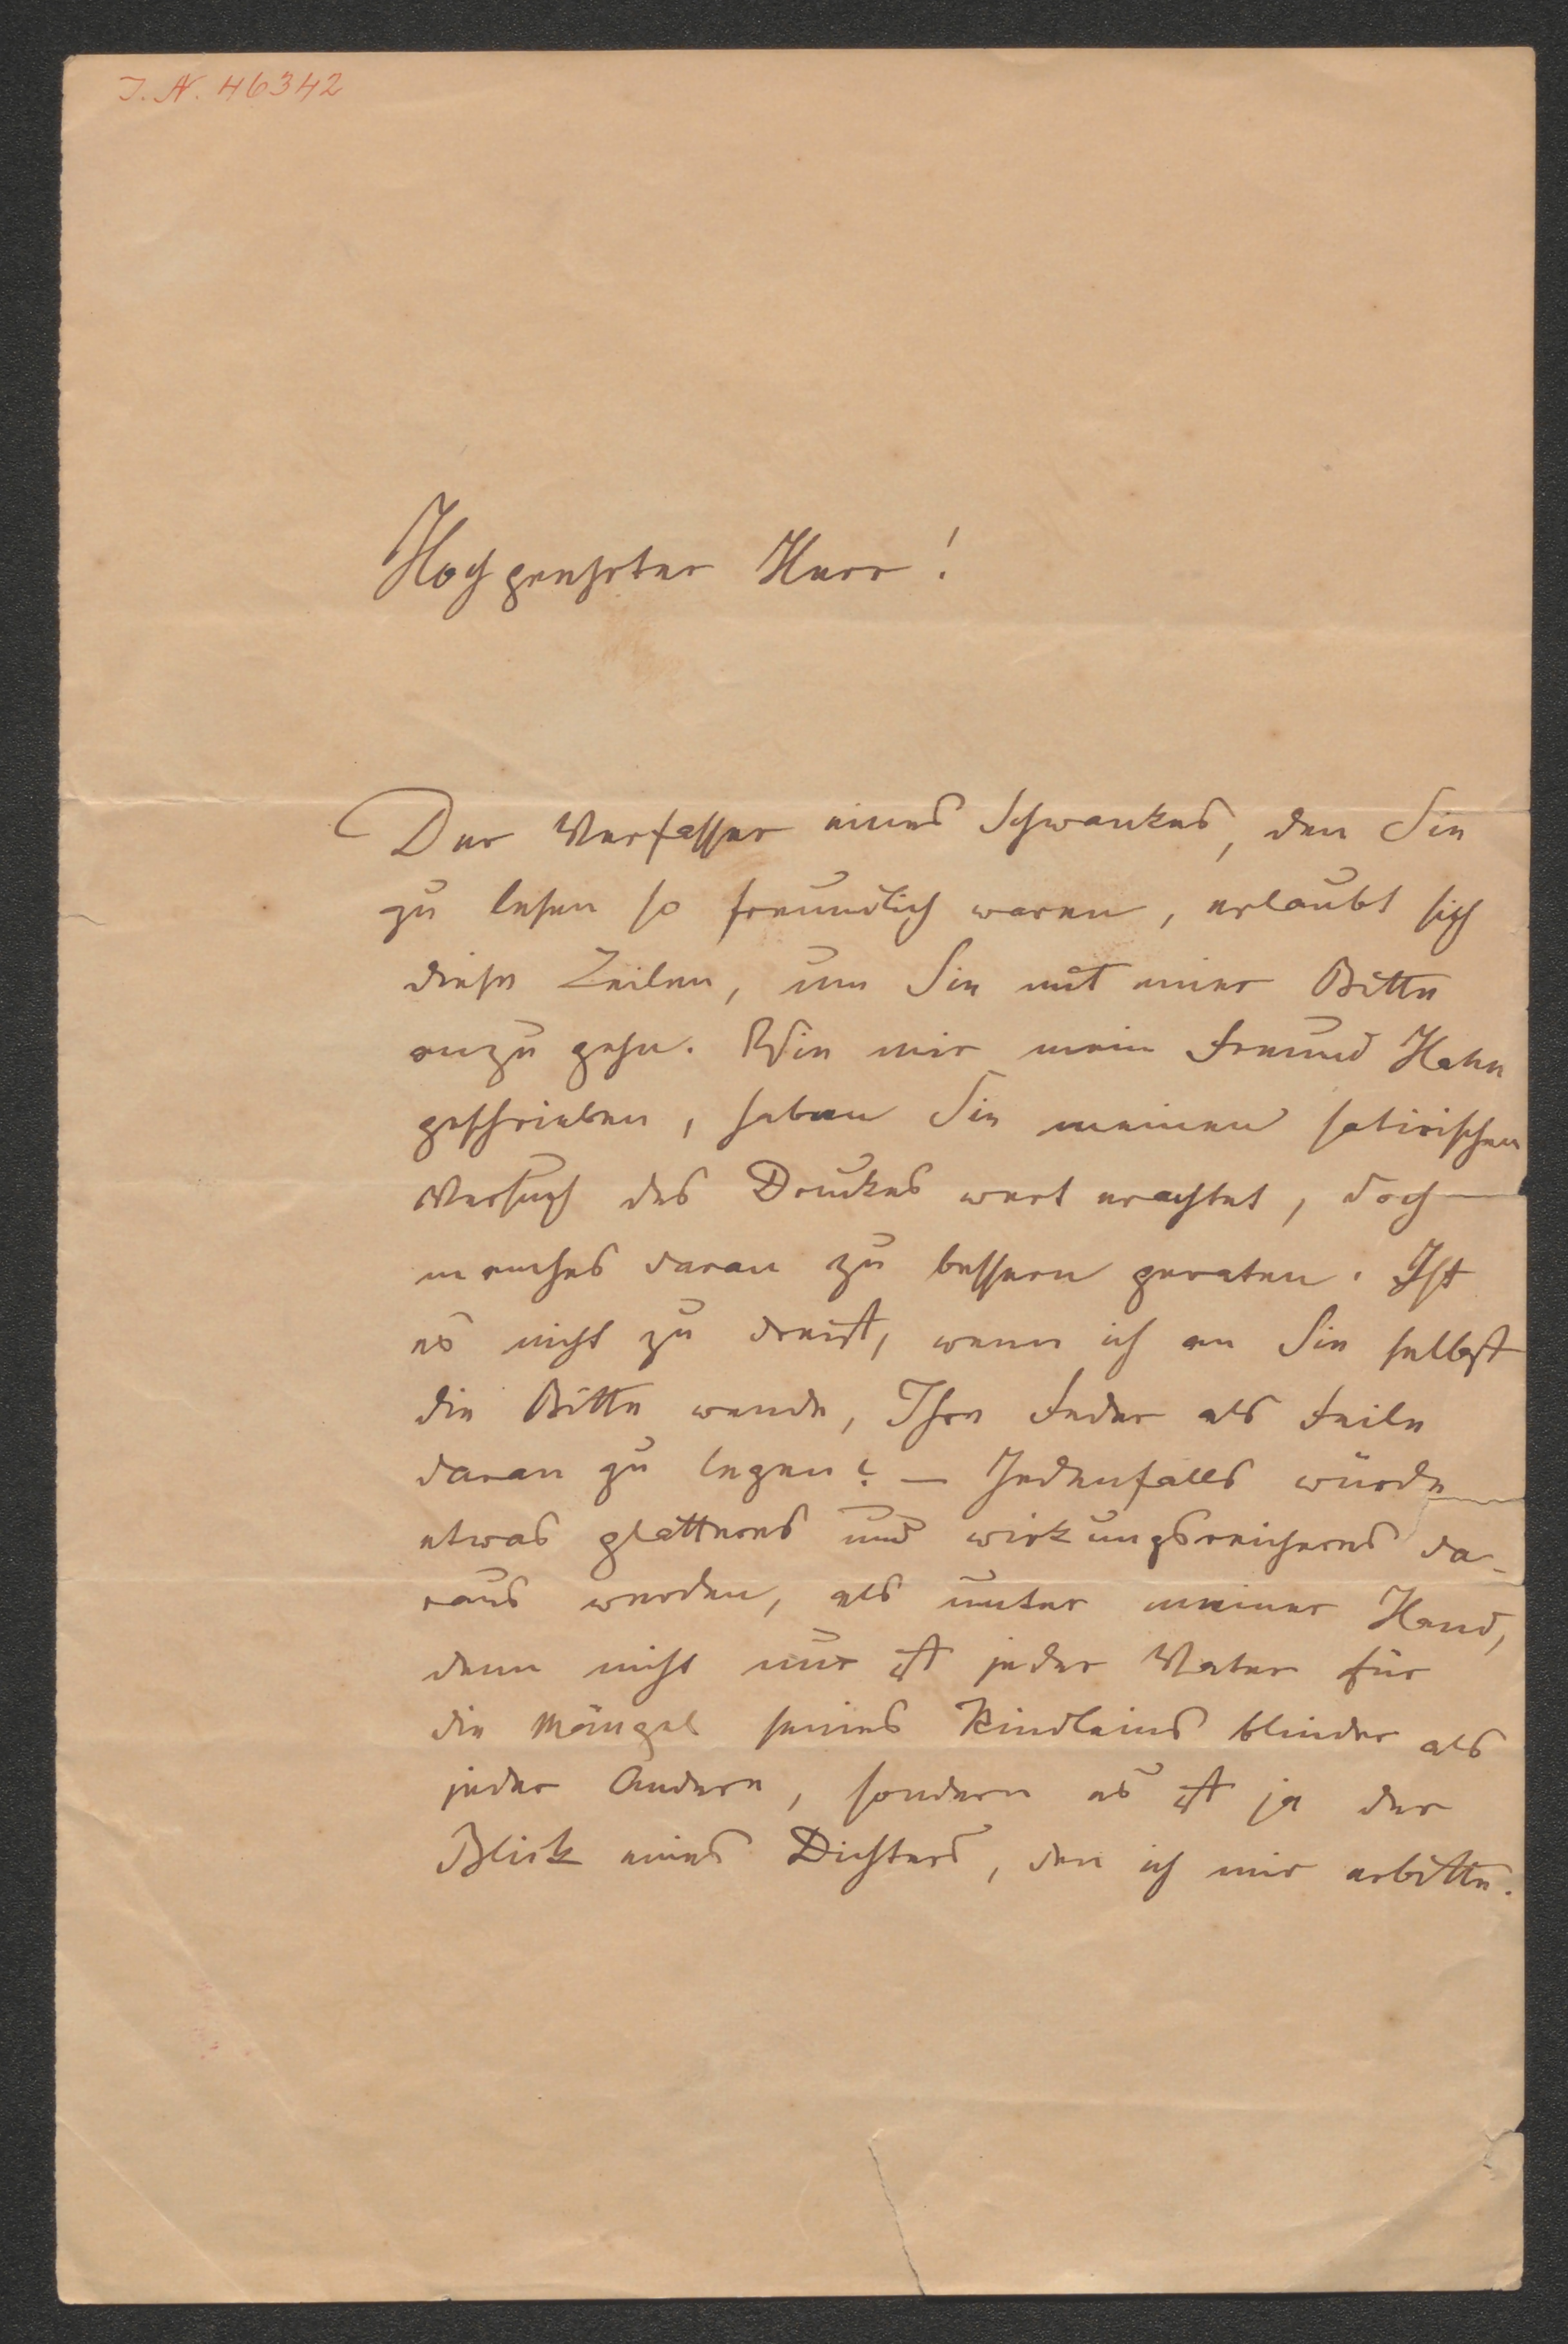 I. N. 46342
Hochgeehrter Herr!
Der Verfasser eines Schwankes, den Sie
zu lesen so freundlich waren, erlaubt sich
diese Zeilen, um Sie mit einer Bitte
anzugehn. Wie mir mein Freund Hahn
geschrieben, haben Sie meinen satirischen
Versuch des Druckes wert erachtet, doch
manches daran zu bessern geraten. Ist
es nicht zu dreist, wenn ich an Sie selbst
die Bitte wende, Ihre Feder als Feile
daran zu legen? — Jedenfalls würde
etwas glatteres und wirkungsreicheres da-
raus werden, als unter meiner Hand,
denn nicht nur ist jeder Vater für
die Mängel seines Kindleins blinder als
jeder Andere, sondern es ist ja der
Blick eines Dichters, den ich mir erbitte.